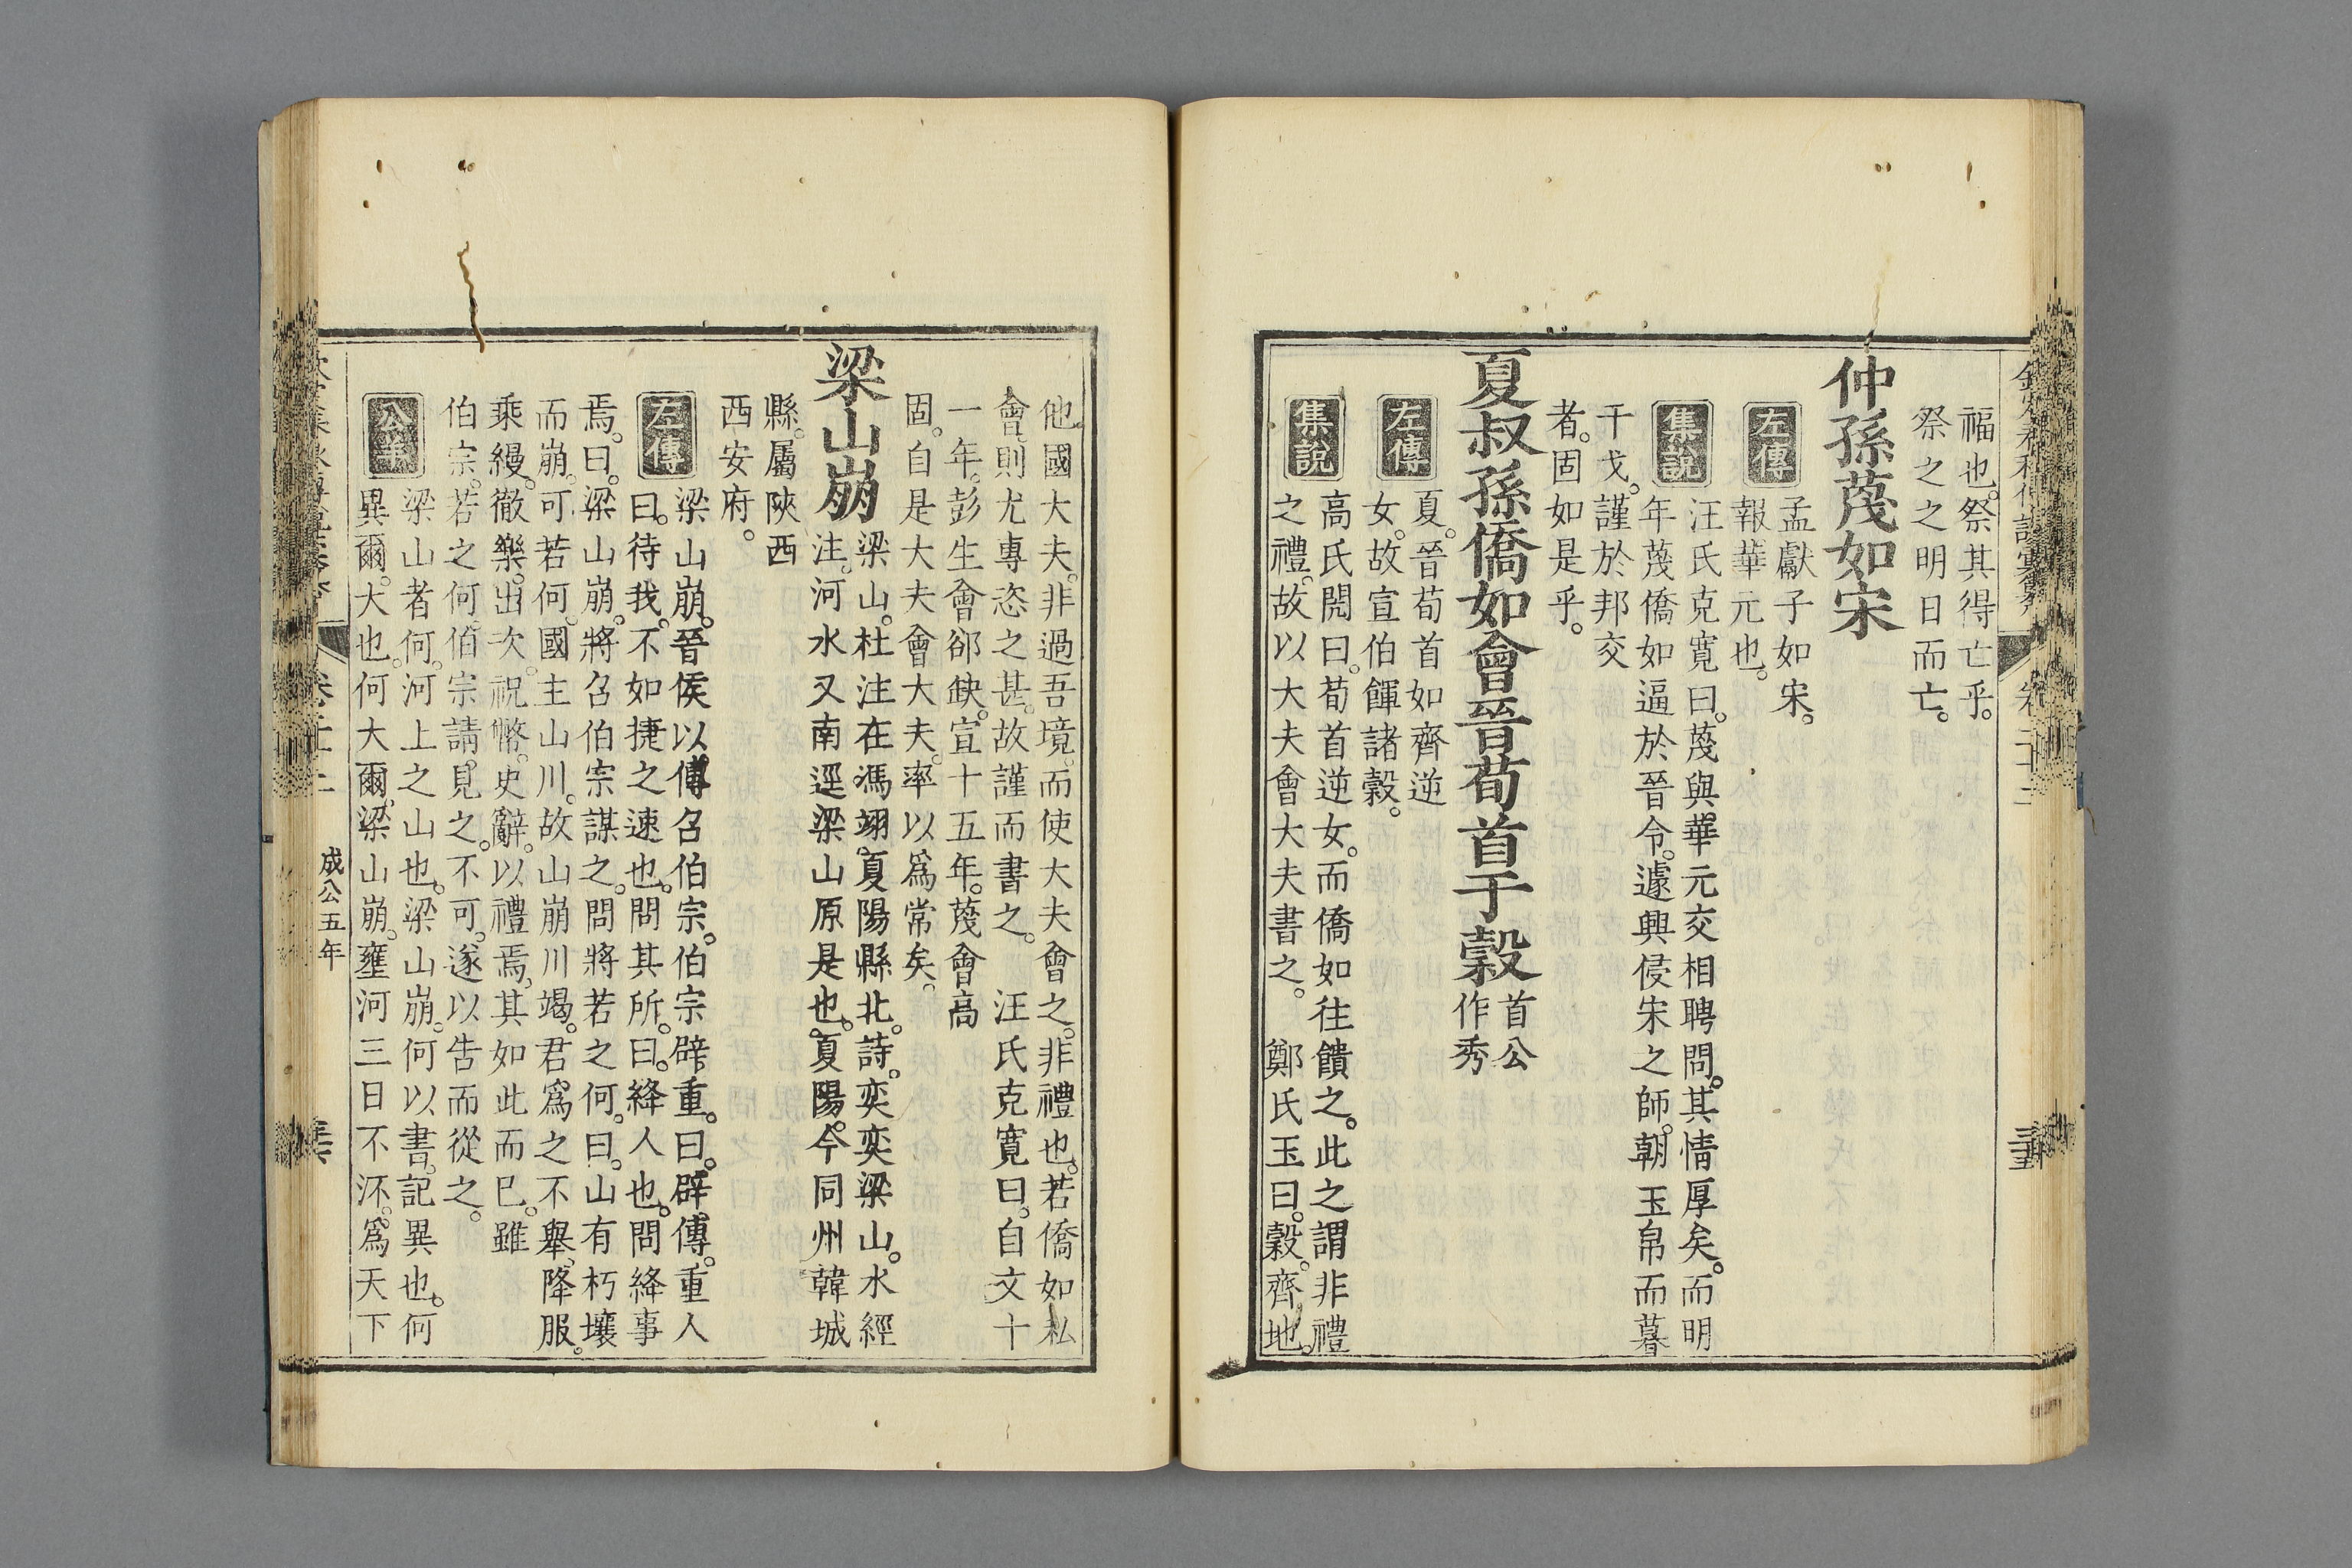 福也。祭其得亡乎。
祭之之明日而亡。
仲孫蔑如宋
左傳
孟獻子如宋。
報華元也。
集說
汪氏克寬曰。蔑與華元交相聘問。其情厚矣。而明
年蔑僑如逼於晉令。遽興侵宋之師。朝玉帛而暮
干戈。謹於邦交
者。固如是乎。
夏叔孫僑如會晉荀首于穀
首公
作秀
左傳
夏。晉荀首如齊逆
女。故宣伯餫諸穀。
集說
高氏閌曰。荀首逆女。而僑如往饋之。此之謂非禮
之禮。故以大夫會大夫書之。 鄭氏玉曰。穀。齊地。
他國大夫。非過吾境。而使大夫會之。非禮也。若僑如私
會。則尤專恣之甚。故謹而書之。 汪氏克寬曰。自文十
一年。彭生會郤缺。宣十五年。蔑會高
固。自是大夫會大夫。率以爲常矣。
梁山崩
梁山。杜注在馮翊。夏陽縣北。詩。奕奕梁山。水經
注。河水又南逕梁山原是也。夏陽。今同州韓城
縣。屬陝西
西安府。
左傳
梁山崩。晉侯以傳召伯宗。伯宗辟重。曰。辟傳。重人
曰。待我。不如捷之速也。問其所。曰。絳人也。問絳事
焉。曰。梁山崩。將召伯宗謀之。問將若之何。曰。山有朽壤
而崩。可若何。國主山川。故山崩川竭。君爲之不舉。降服。
乘縵。徹樂。出次。祝幣。史辭。以禮焉。其如此而已。雖
伯宗。若之何。伯宗請見之。不可。遂以告而從之。
公羊
梁山者何。河上之山也。梁山崩。何以書。記異也。何
異爾。大也。何大爾。梁山崩。壅河三日不沠。爲天下
成公五年